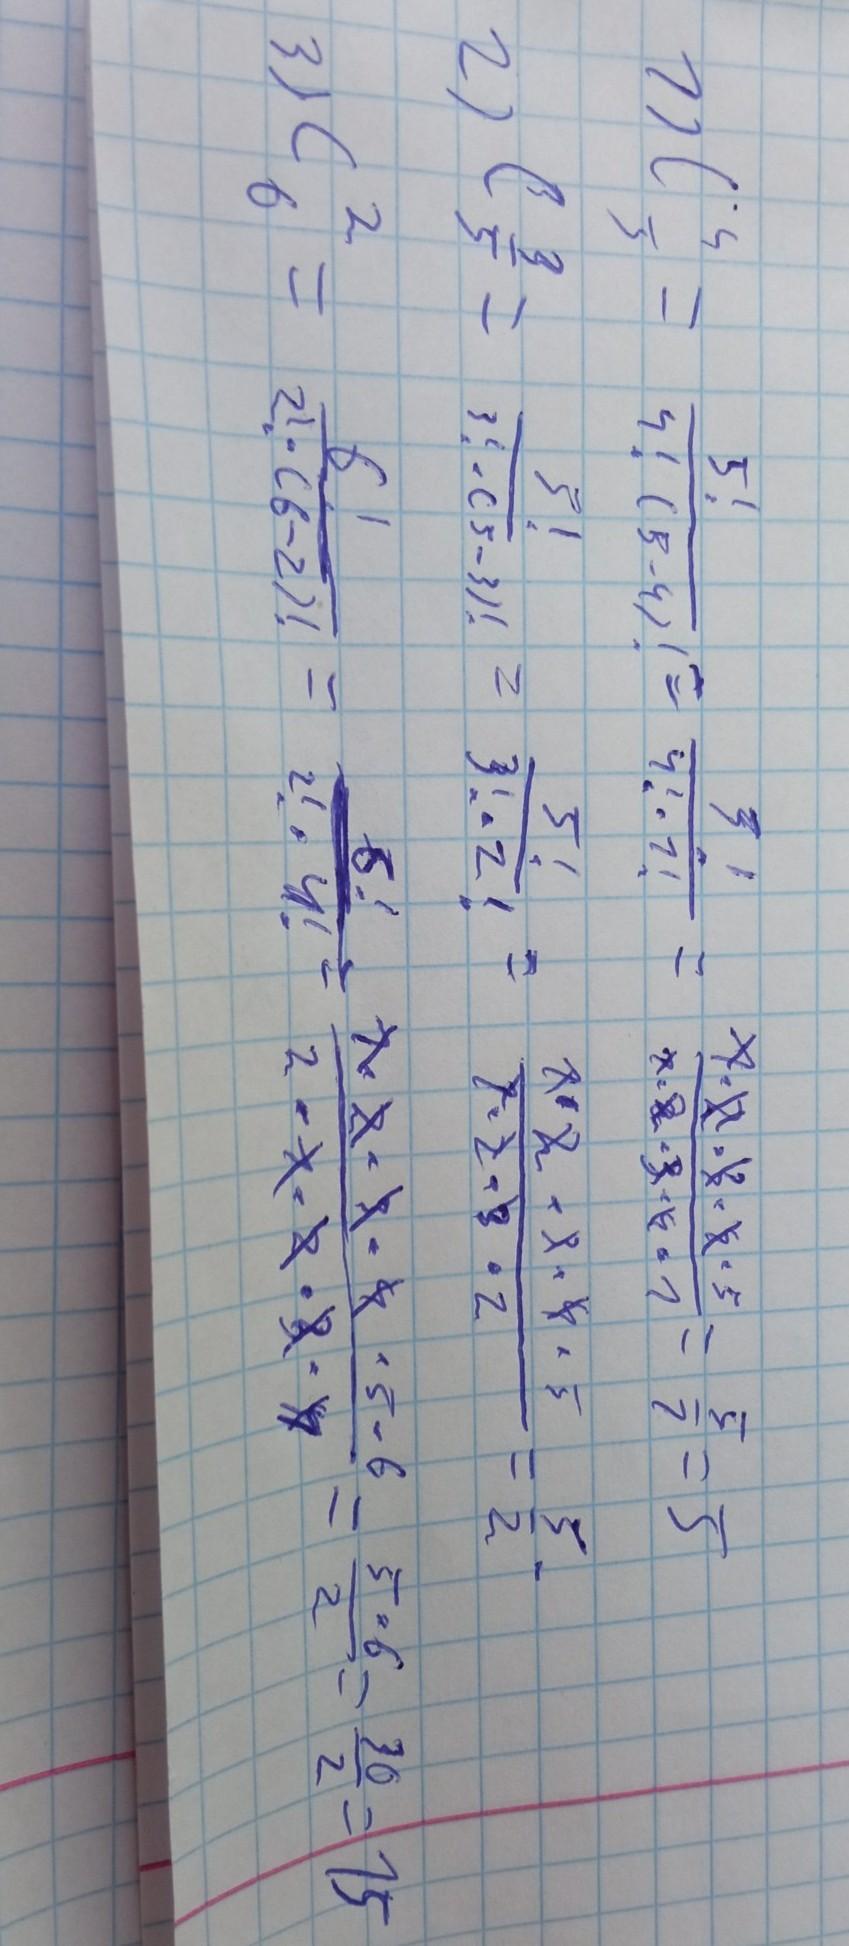 1) C_5^4 = 5! / 4! (5-4)! = 5! / 4! · 1! = 1 · 2 · 3 · 4 · 5 / 1 · 2 · 3 · 4 · 1 = 5 / 1 = 5
2) C_5^3 = 5! / 3! · (5-3)! = 5! / 3! · 2! = 1 · 2 · 3 · 4 · 5 / 1 · 2 · 3 · 2 = 5 / 2
3) C_6^2 = 6! / 2! · (6-2)! = 6! / 2! · 4! = 1 · 2 · 3 · 4 · 5 · 6 / 2 · 1 · 2 · 3 · 4 = 5 · 6 / 2 = 30 / 2 = 15